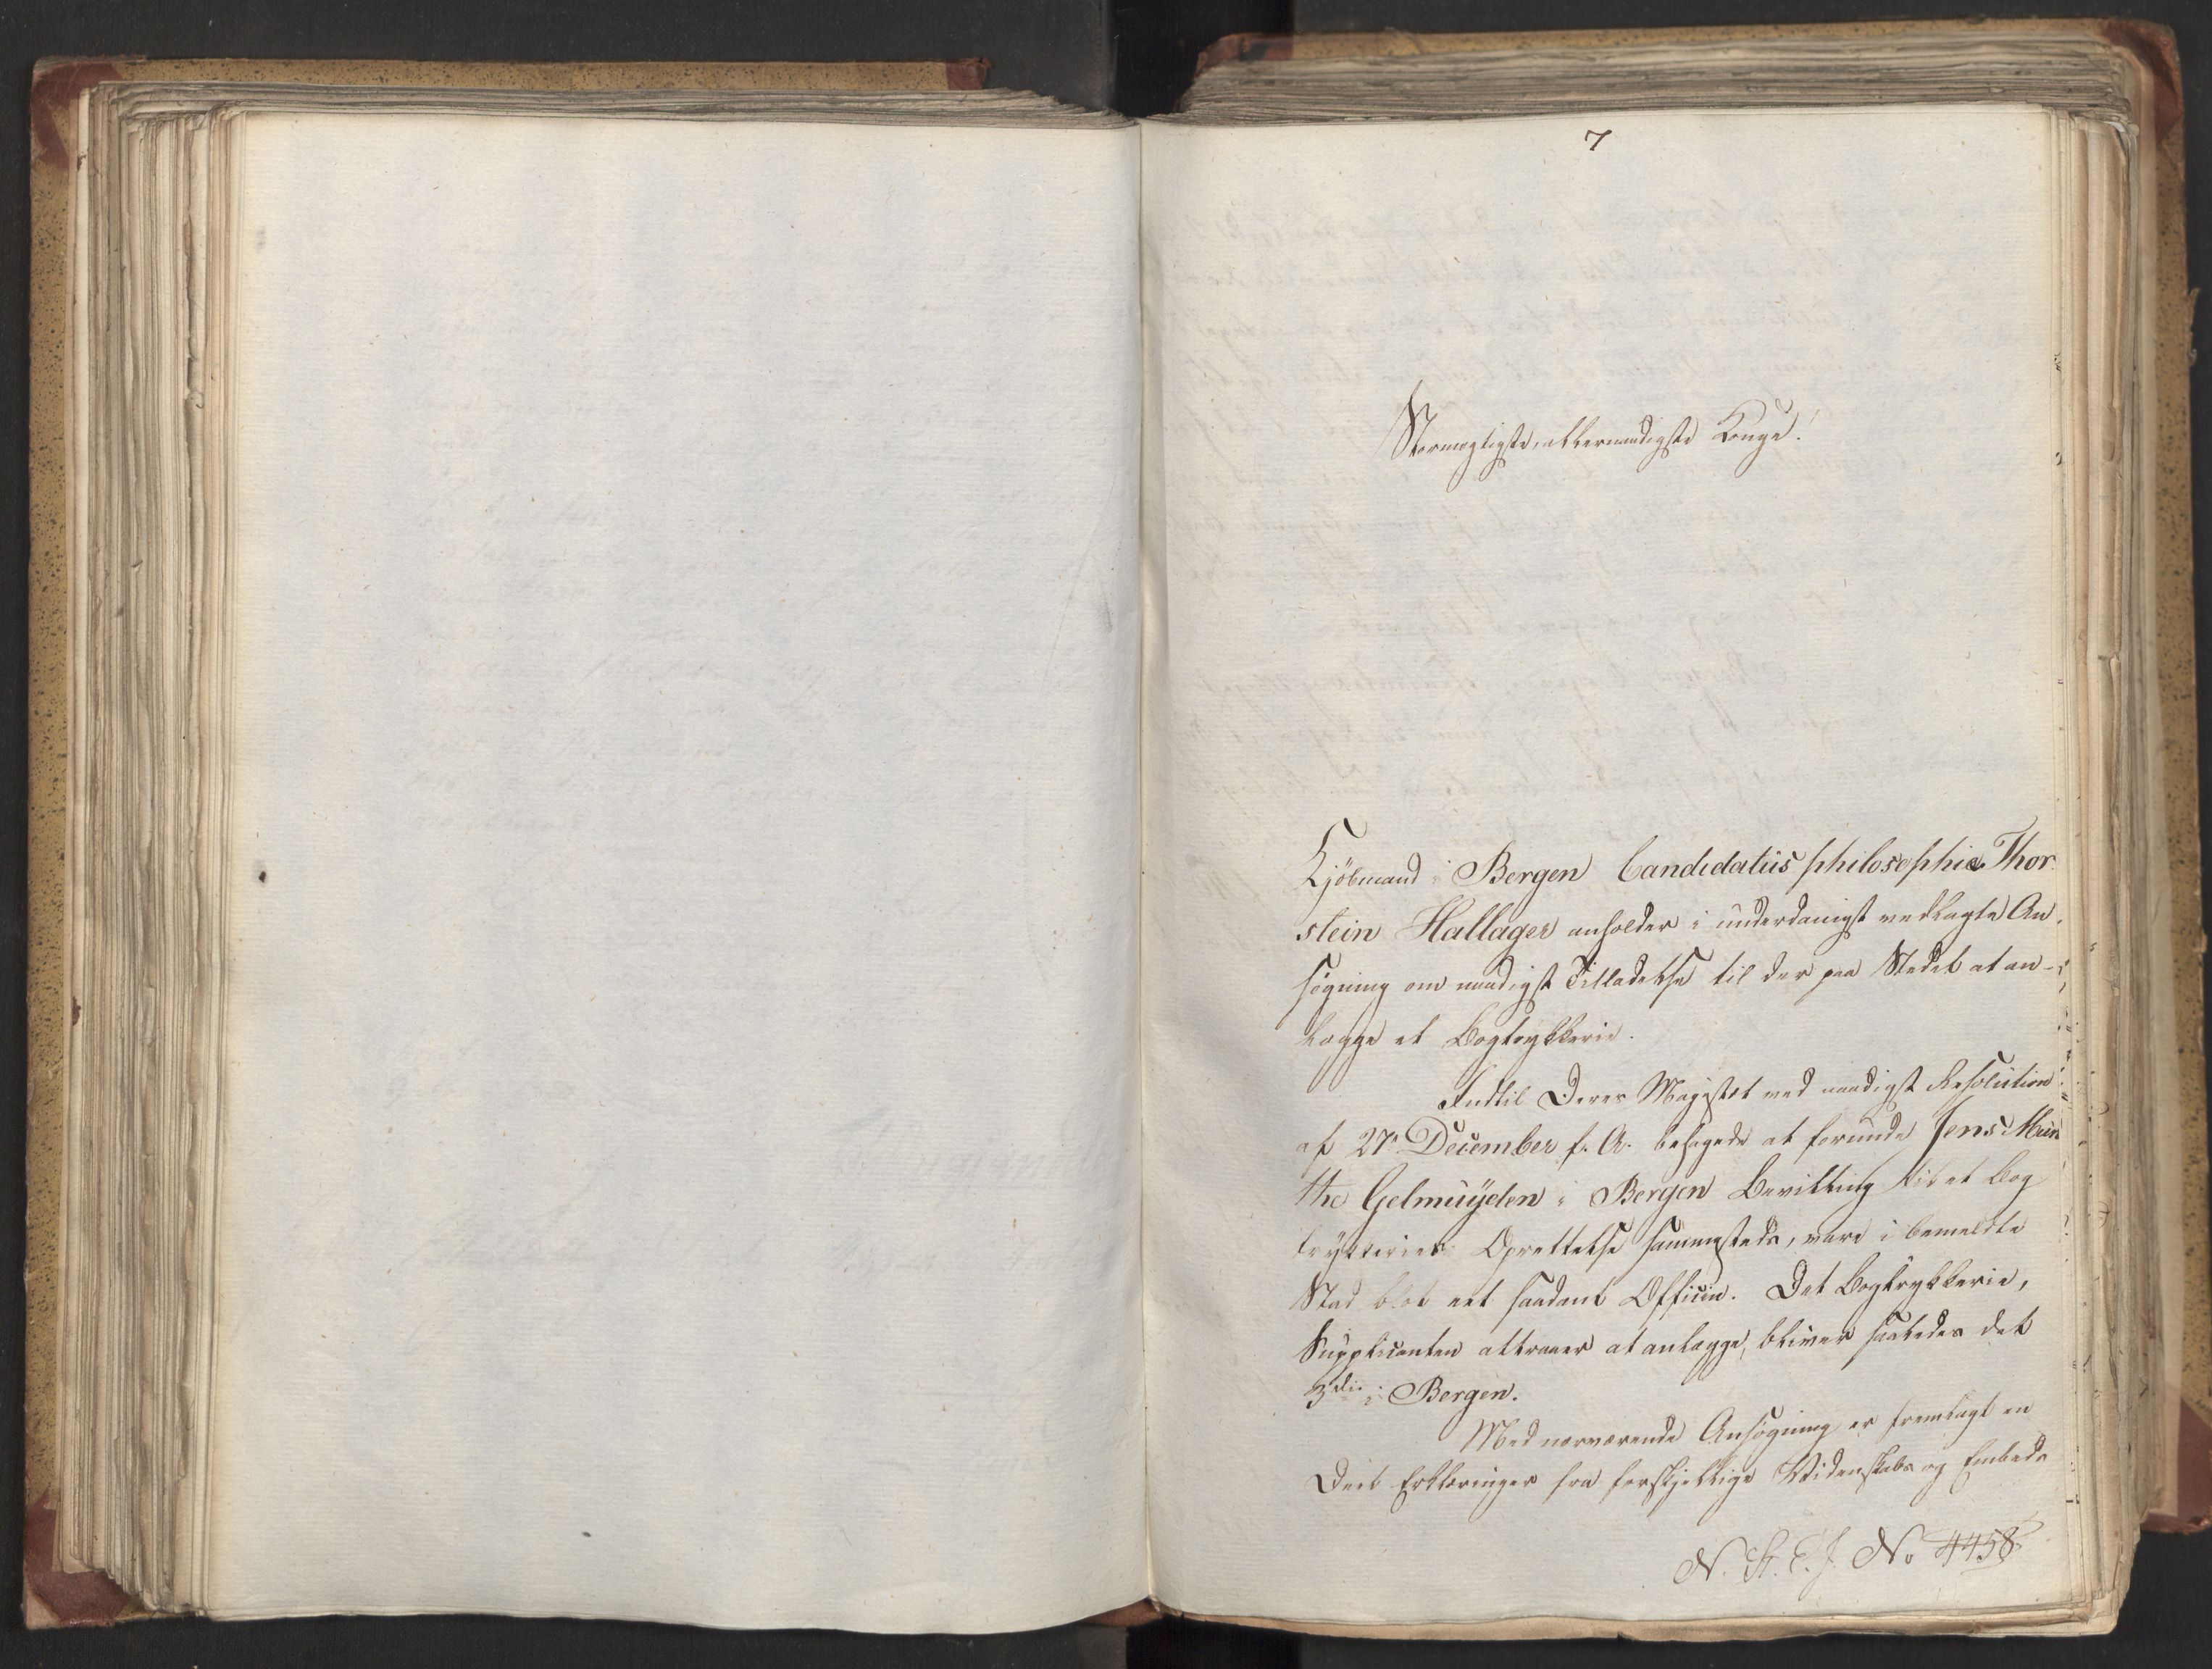 7
Stormægtigste, allernaadigste Konge!
Kjöbmand i Bergen Candidatus philosophiæ Thor
stein Hallager anholder i underdanigst vedlagte An-
søgning om naadigst Tilladelse til der paa Stedet at an-
lægge et Bogtrykkerie.
Indtil Deres Majestæt ved naadigst Resolution
af 27de December f. A. behagede at forunde Jens Mun
the Gelmuÿden i Bergen Bevilling til et Bog
trykkeries Oprettelse sammesteds, vare i bemeldte
Stad blot eet saadant Officin. Det Bogtrykkerie,
Supplicanten attraaer at anlægge, bliver saaledes det
3die i Bergen.
Med nærværende Ansøgning er fremlagt en
Deel Erklæringer fra forskjellige Videnskabs og Embeds
N. St. E. J. No 4458